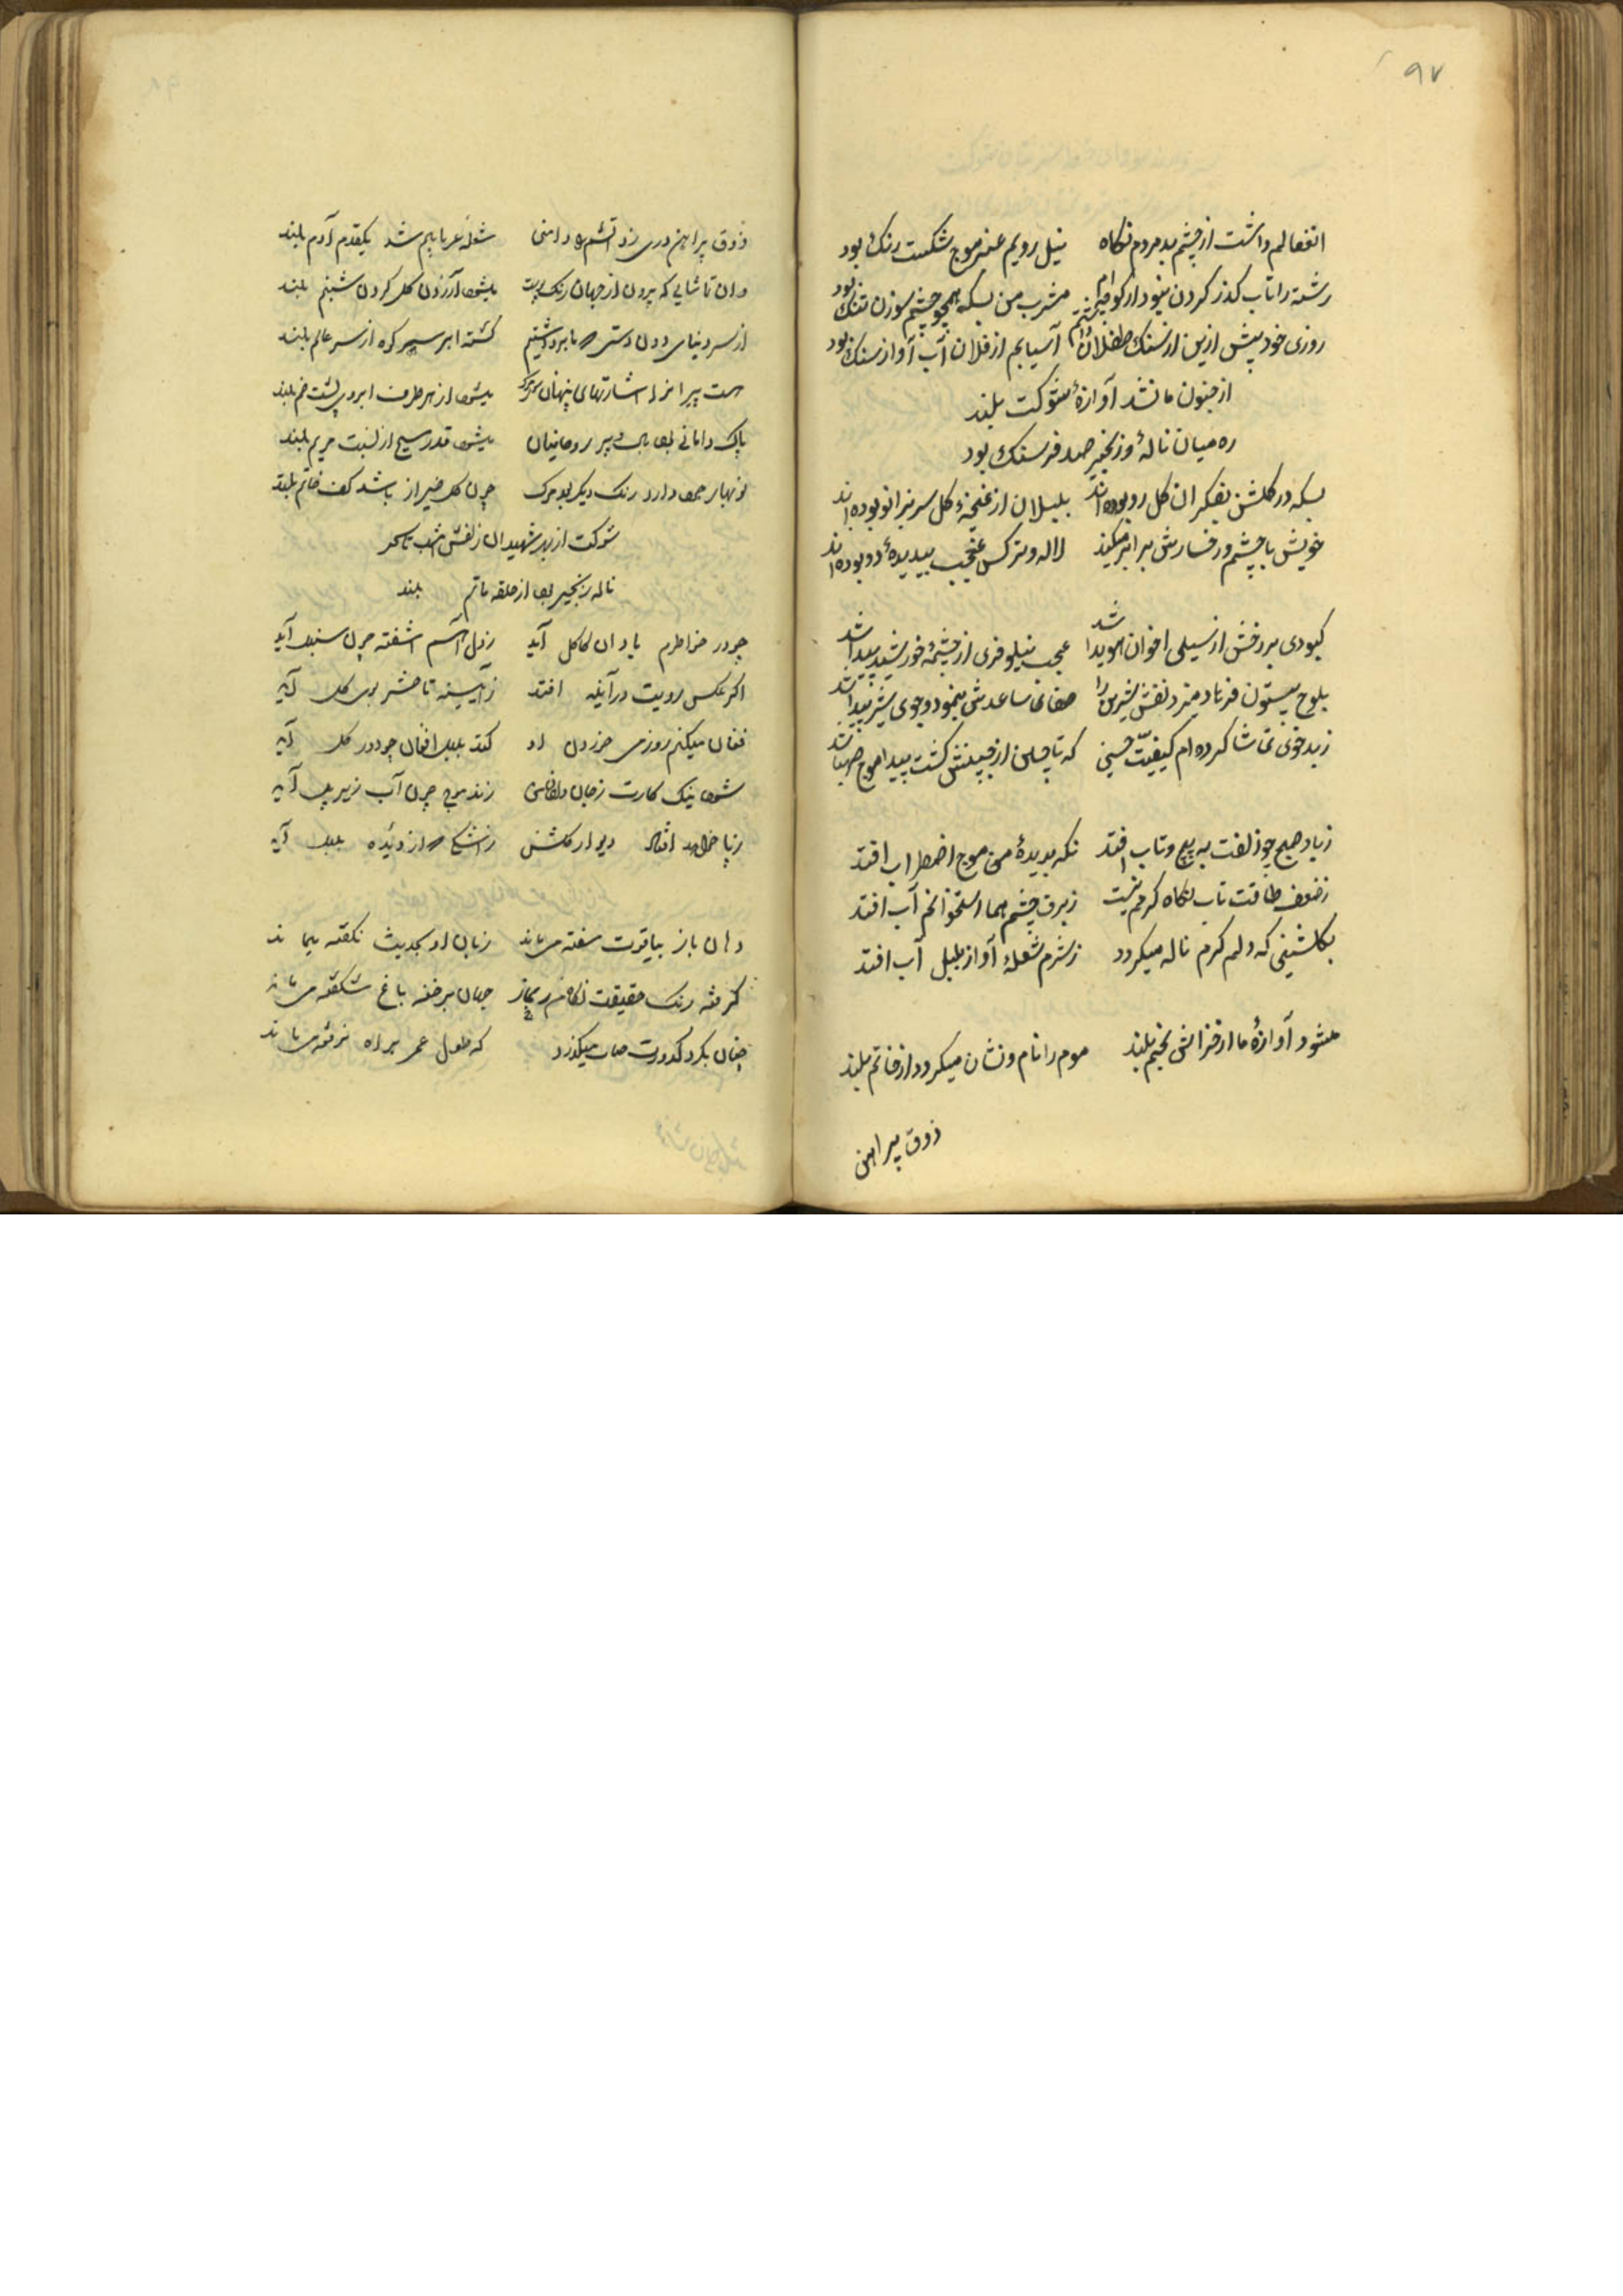 ۹۷
انفعالم داشت از چشم بد مردم نگاه نیل رویم عنبر موج شکست رنک بود
رشته را تاب کذر کردن نبود از کو مشرب من بسکه همچو چشم سوزن تنک بود
روزی خود پیش ازین از سنک طفلان آسیابم از فلان آب آواز سنک بود
از جنون ما نشد آوازهٔ شوکت بلند
ره میان نالهٔ و زنجیر صد فرسنک بود
بسکه در کلشن بفکر ان کل رو بوده اند بلبلان از غنچهٔ کل سر بزانو بوده اند
خویش با چشم و رخسارش برابر میکنند لاله و نرکس عجب بیدیدهٔ رو بوده اند
کبودی بر رخش از سیلی اخوان هویدا شد عجب نیلوفری از چشمهٔ خورشید پیدا شد
بلوح بیستون فرهاد میزد نقش شیرین را صفای ساعدش بنمود و جوی شیر پیدا شد
ز بد خوی تماشا کرده ام کیفیت حسنی که تا چین از جبینش کشت پیدا موج صهبا شد
ز باد صبح چو زلفت به پیچ و تاب افتد نکه بدیدهٔ من موج اضطراب افتد
ز ضعف طاقت تاب نکاه کرمم نیست ز برق چشم هما استخوانم آب افتد
بکلشنی که دلم کرم ناله میکردد ز شرم شعلهٔ آواز بلبل آب افتد
میشود آوازهٔ ما از خراش بلند موم را نام و نشان میکردد از خاتم بلند
ذوق پیراهن
ذوق پیراهن دری زد آتشم در دامنی شعله عریانیم شد یکقدم آدم بلند
وان تماشایی که بیرون از جهان رنک بوست میشود آزردن کل کردن شبنم بلند
از سر دنیای دون دستی که ما برداشتیم کشته ابر سیر کوه از سر عالم بلند
هست پیرانرا اشارتهای پنهان میشود از هر طرف ابروی پشت خم بلند
پاک دامانی بود بال و پر روحانیان میشود قدر مسیح از نسبت مریم بلند
نوبهار دارد رنک دیکر چون کل خمیازه باشد کف خاتم بلند
شوکت از بهر شهیدان زلفش شب تا سحر
ناله زنجیر بود از حلقه ماتم بلند
چو در خاطرم یاد ان کاکل آید ز دل آهم اشفته چون سنبل آید
اکر عکس رویت در آیینه افتد ز آیینه تا حشر بوی کل آید
فغان میکنم روزی خون دل او کند بلبل افغان چو دور کل آید
شود نیک کارت ز زند موج چون آب زیر پل آید
ز پا خواهد افتاد دیوار کلشن ز اشکی که از دیده بلبل آید
دهان باز بیاقوت سفته می ماند زبان او بحدیث نکفته میماند
کرفته رنک حقیقت نکاهم ز مجاز جهان برخنه باغ شکفته می ماند
چنان بکرد کدورت حیات میکذرد که طول عمر براه نرفته می ماند